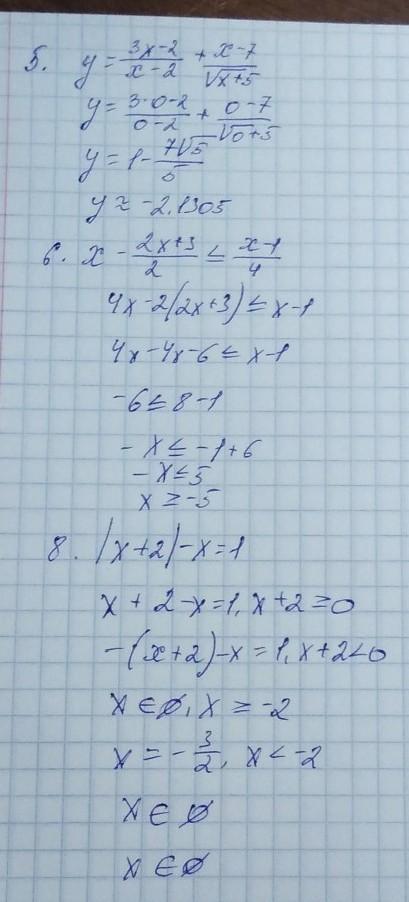 5. y = \frac{3x-2}{x-2} + \frac{x-7}{\sqrt{x+5}}
y = \frac{3·0-2}{0-2} + \frac{0-7}{\sqrt{0+5}}
y = 1 - \frac{7\sqrt{5}}{5}
y ≈ -2.1305
6. x - \frac{2x+3}{2} ≤ \frac{x-1}{4}
4x-2(2x+3) ≤ x-1
4x-4x-6 ≤ x-1
-6 ≤ 8-1
-x ≤ -1+6
-x ≤ 5
x ≥ -5
8. |x+2|-x=1
x+2-x=1, x+2≥0
-(x+2)-x=1, x+2<0
x∈∅, x ≥ -2
x = -\frac{3}{2}, x < -2
x∈∅
x∈∅